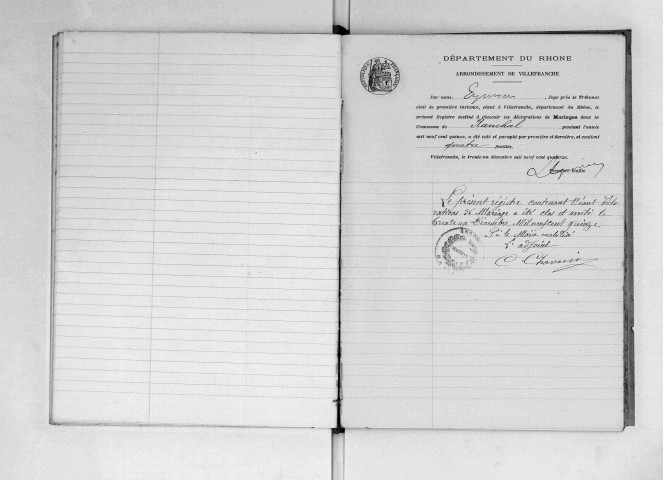 DÉPARTEMENT DU RHONE
ARRONDISSEMENT DE VILLEFRANCHE
Par nous, Juge près le Tribunal
civil de première instance, séant à Villefranche, département du Rhône, le
présent Registre destiné à recevoir les déclarations de Mariages dans la
Commune de Ranchal pendant l'année
mil neuf cent quinze, a été coté et paraphé par première et dernière, et contient
quatre feuilles.
Villefranche, le trente-un décembre mil neuf cent quatorze.
Première feuille
Le présent régistre contenant Néant Décla
rations de Mariage a été clos et arrêté le
trente un Décembre Mil neuf cent quinze
Pr le Maire mobilisé
L'adjoint